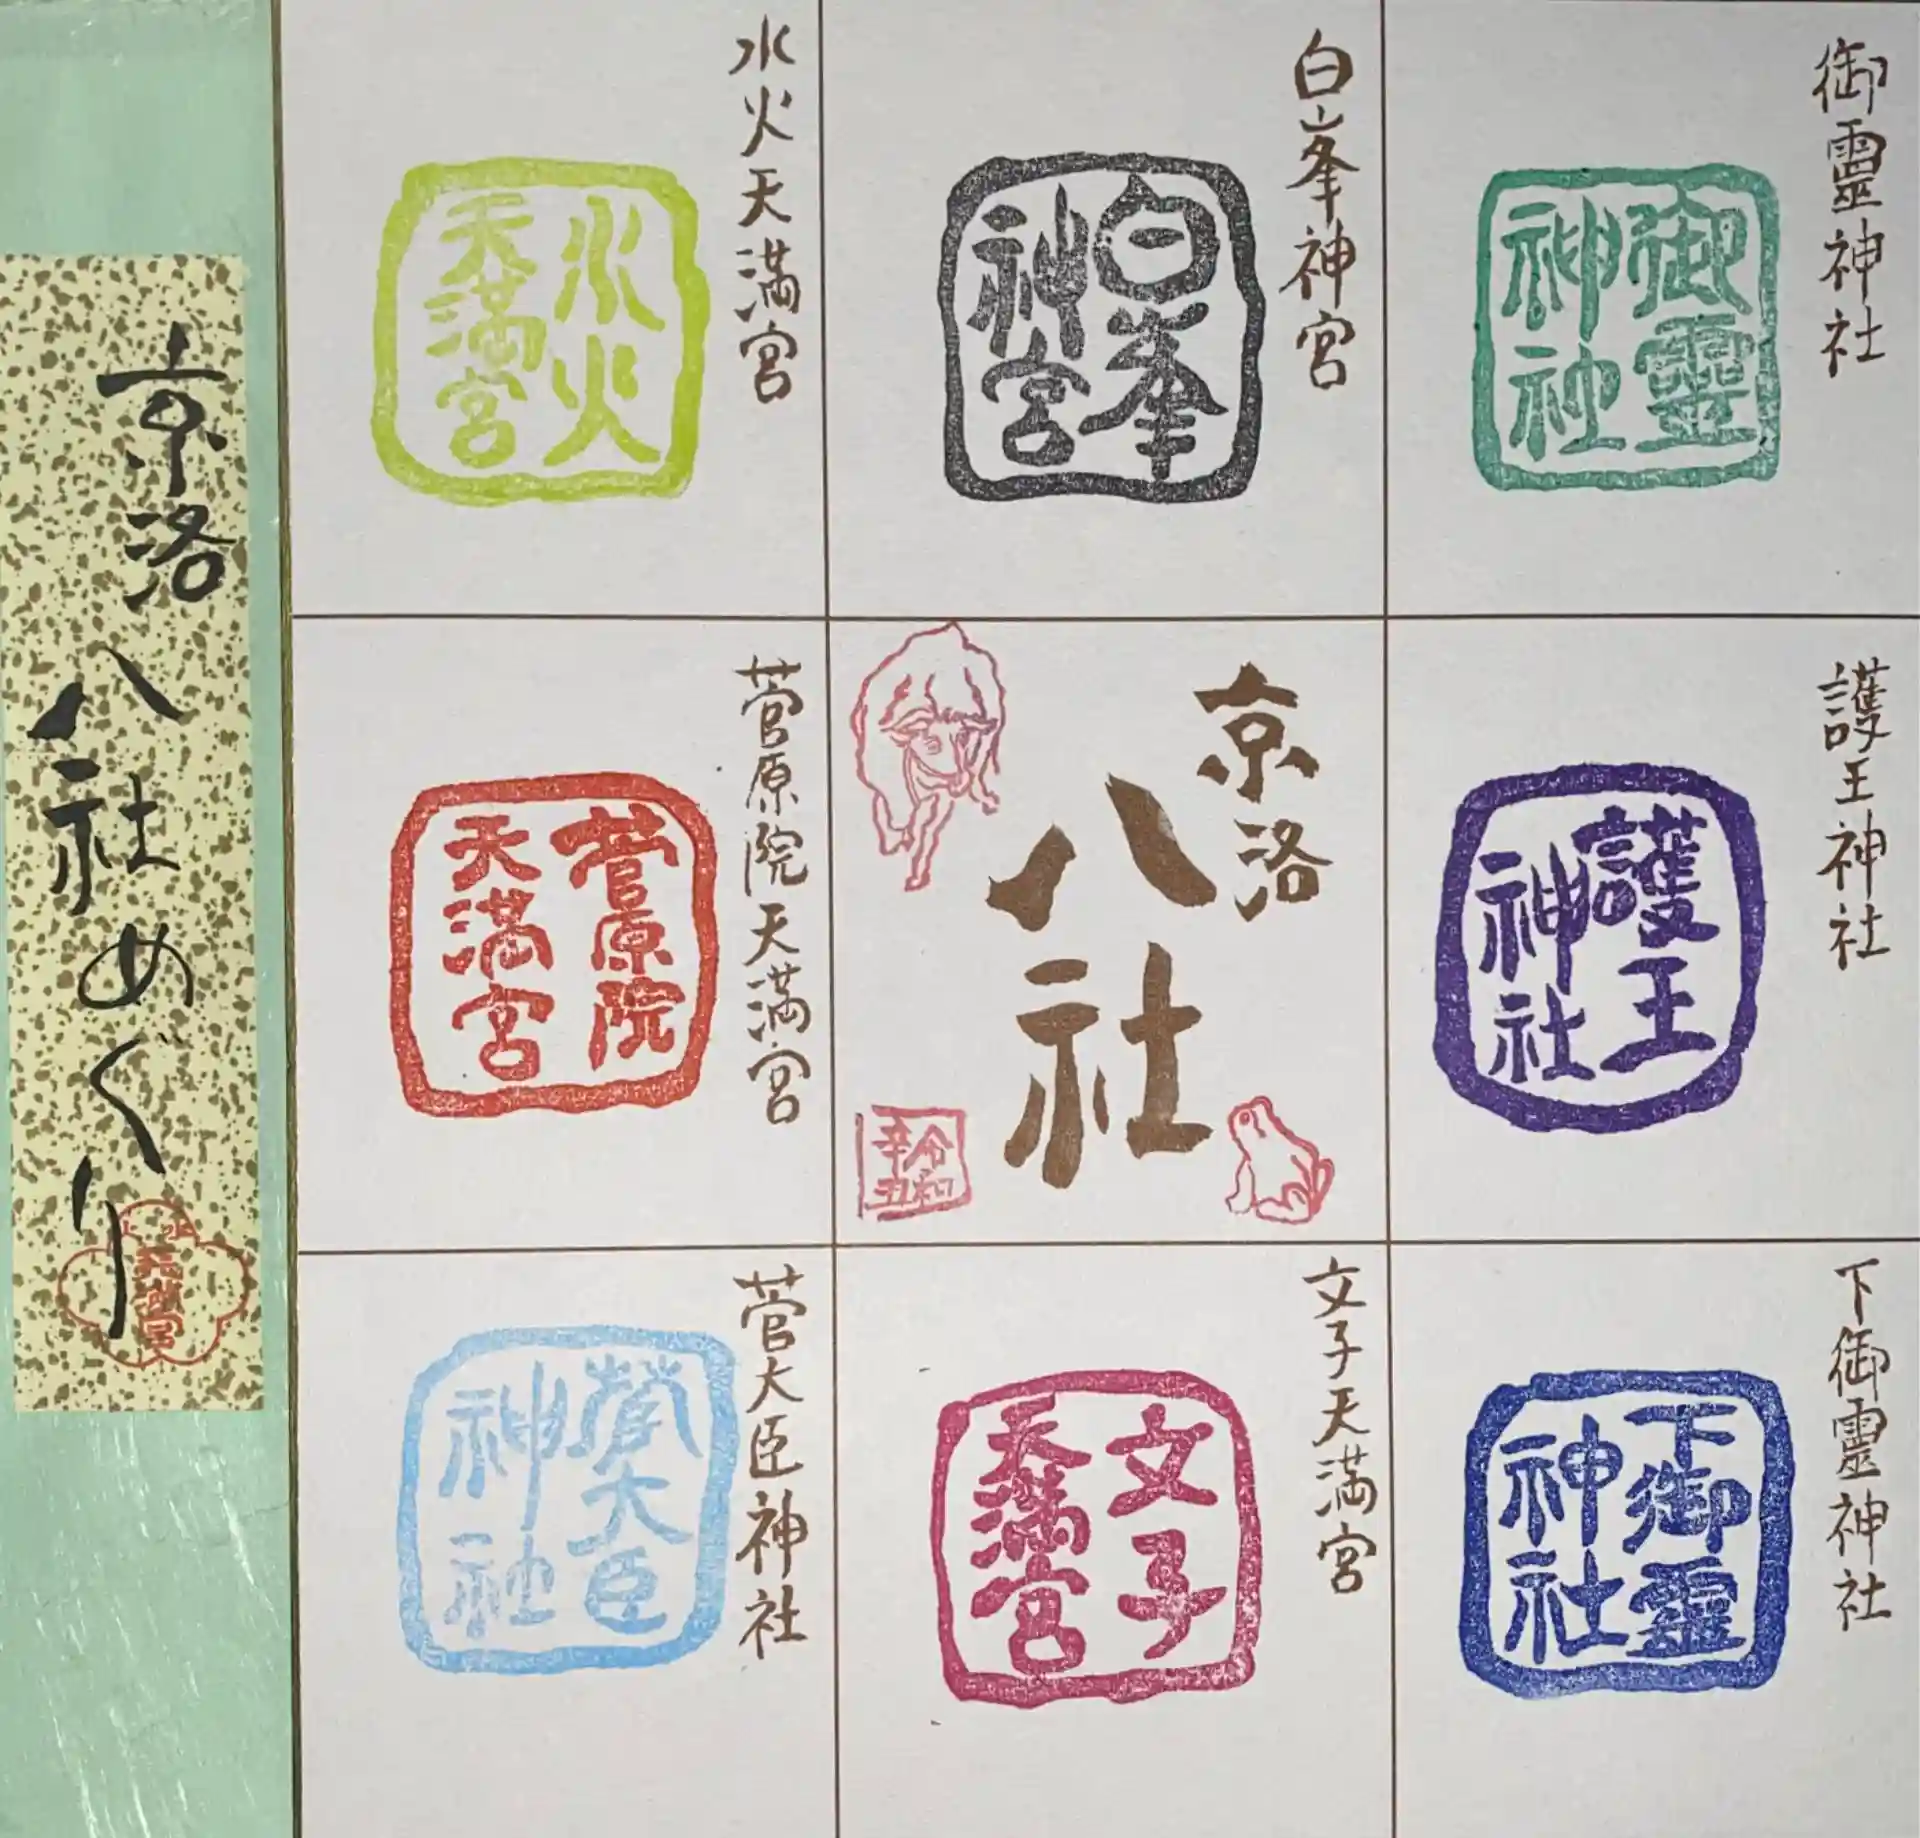 御靈神社
御靈
神社
白峯神宮
白峯
神宮
水火天満宮
水火
天満宮
護王神社
護王
神社
京洛
八社
令和
辛丑
菅原院天満宮
菅原院
天満宮
下御霊神社
下御靈
神社
文子天満宮
文子
天満宮
菅大臣神社
菅大臣
神社
京洛八社めぐり
天満宮